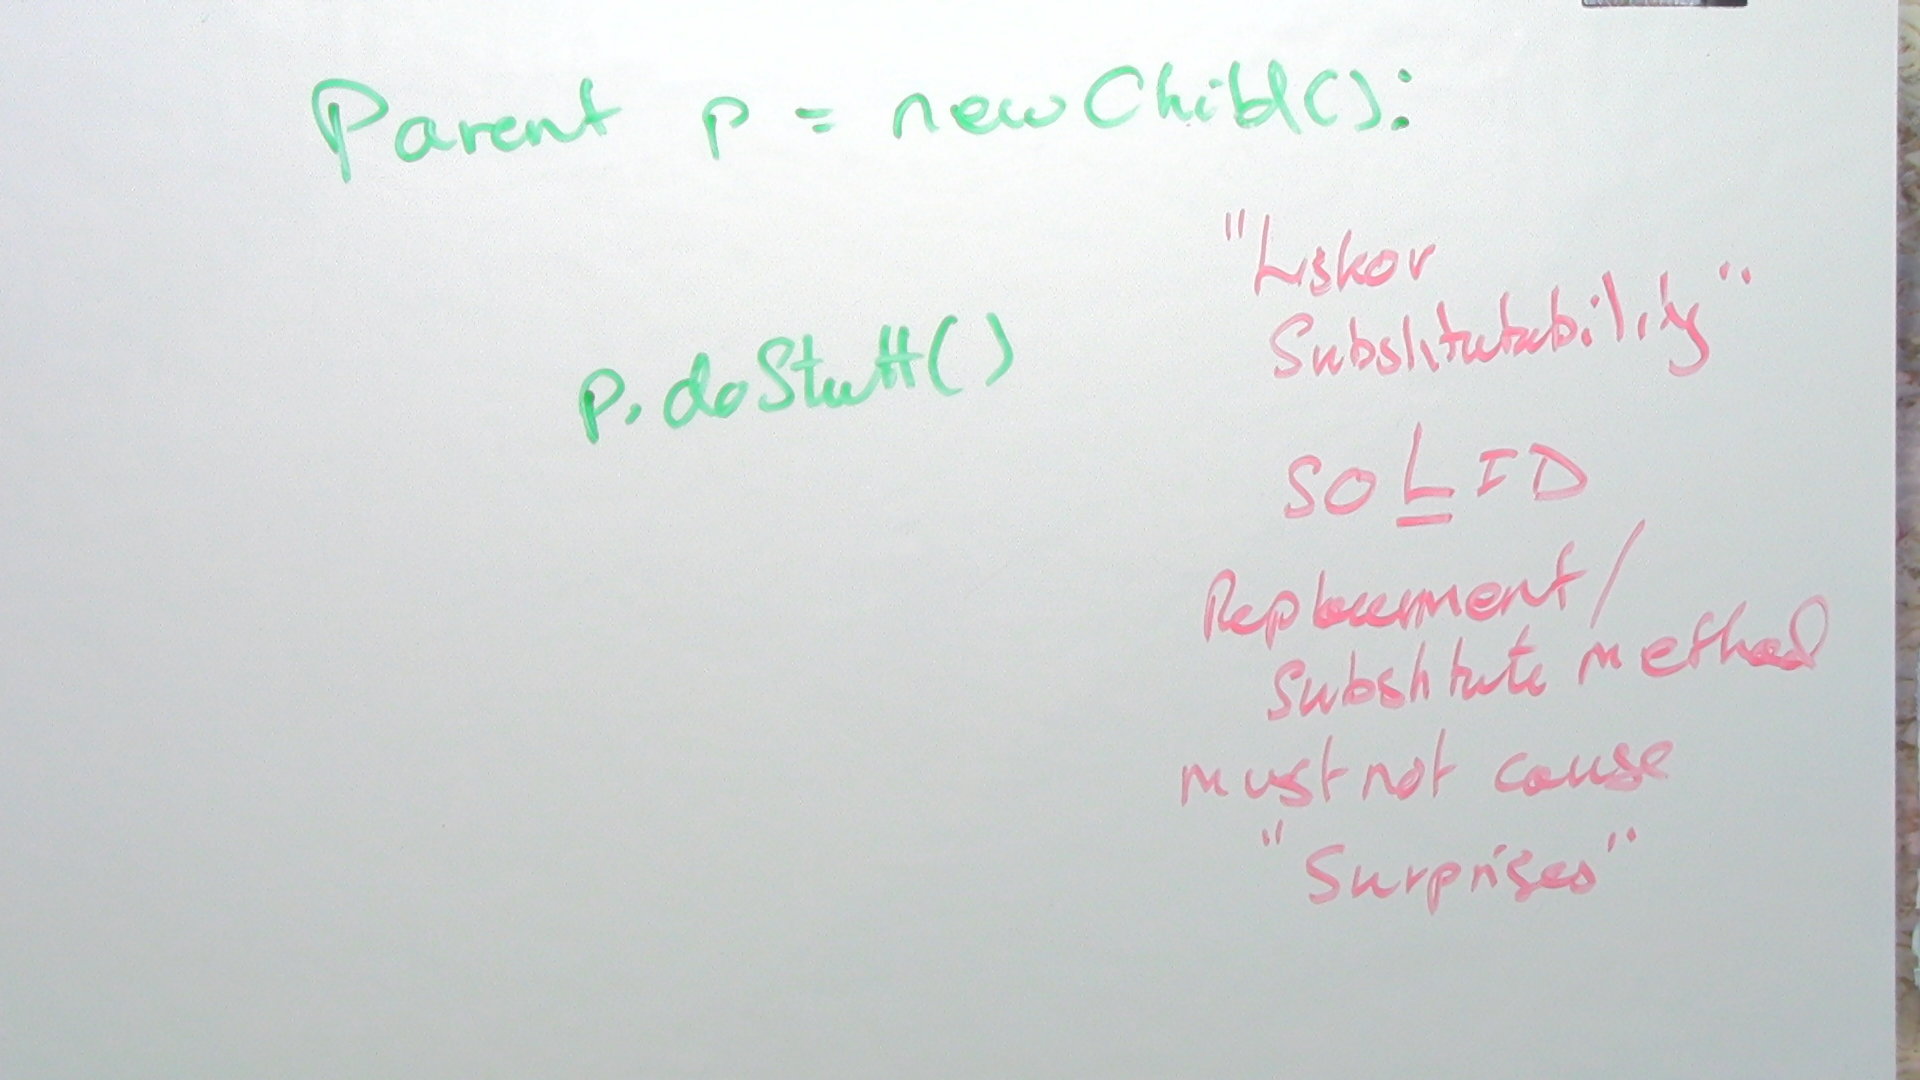 Parent p = new Child();
p.doStuff()
"Liskov
Substitutability"
SOLID
Replacement/
Substitute method
must not cause
"Surprises"